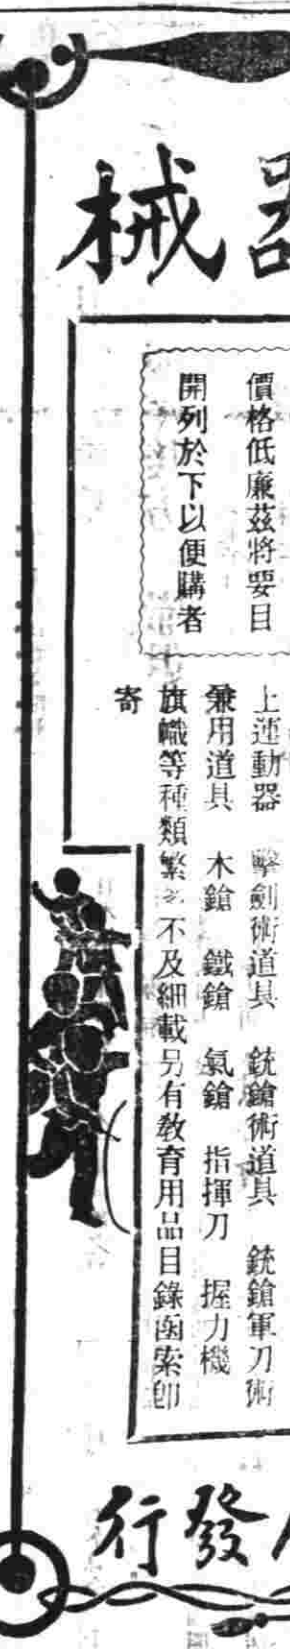 器械
價格低廉茲將要目
開列於下以便購者
上運動器　擊劍術道具　銃鎗術道具　銃鎗軍刀術
兼用道具　木鎗　鐵鎗　氣鎗　指揮刀　握力機
旗幟等種類繁多不及細載另有教育用品目錄函索卽
寄
發行